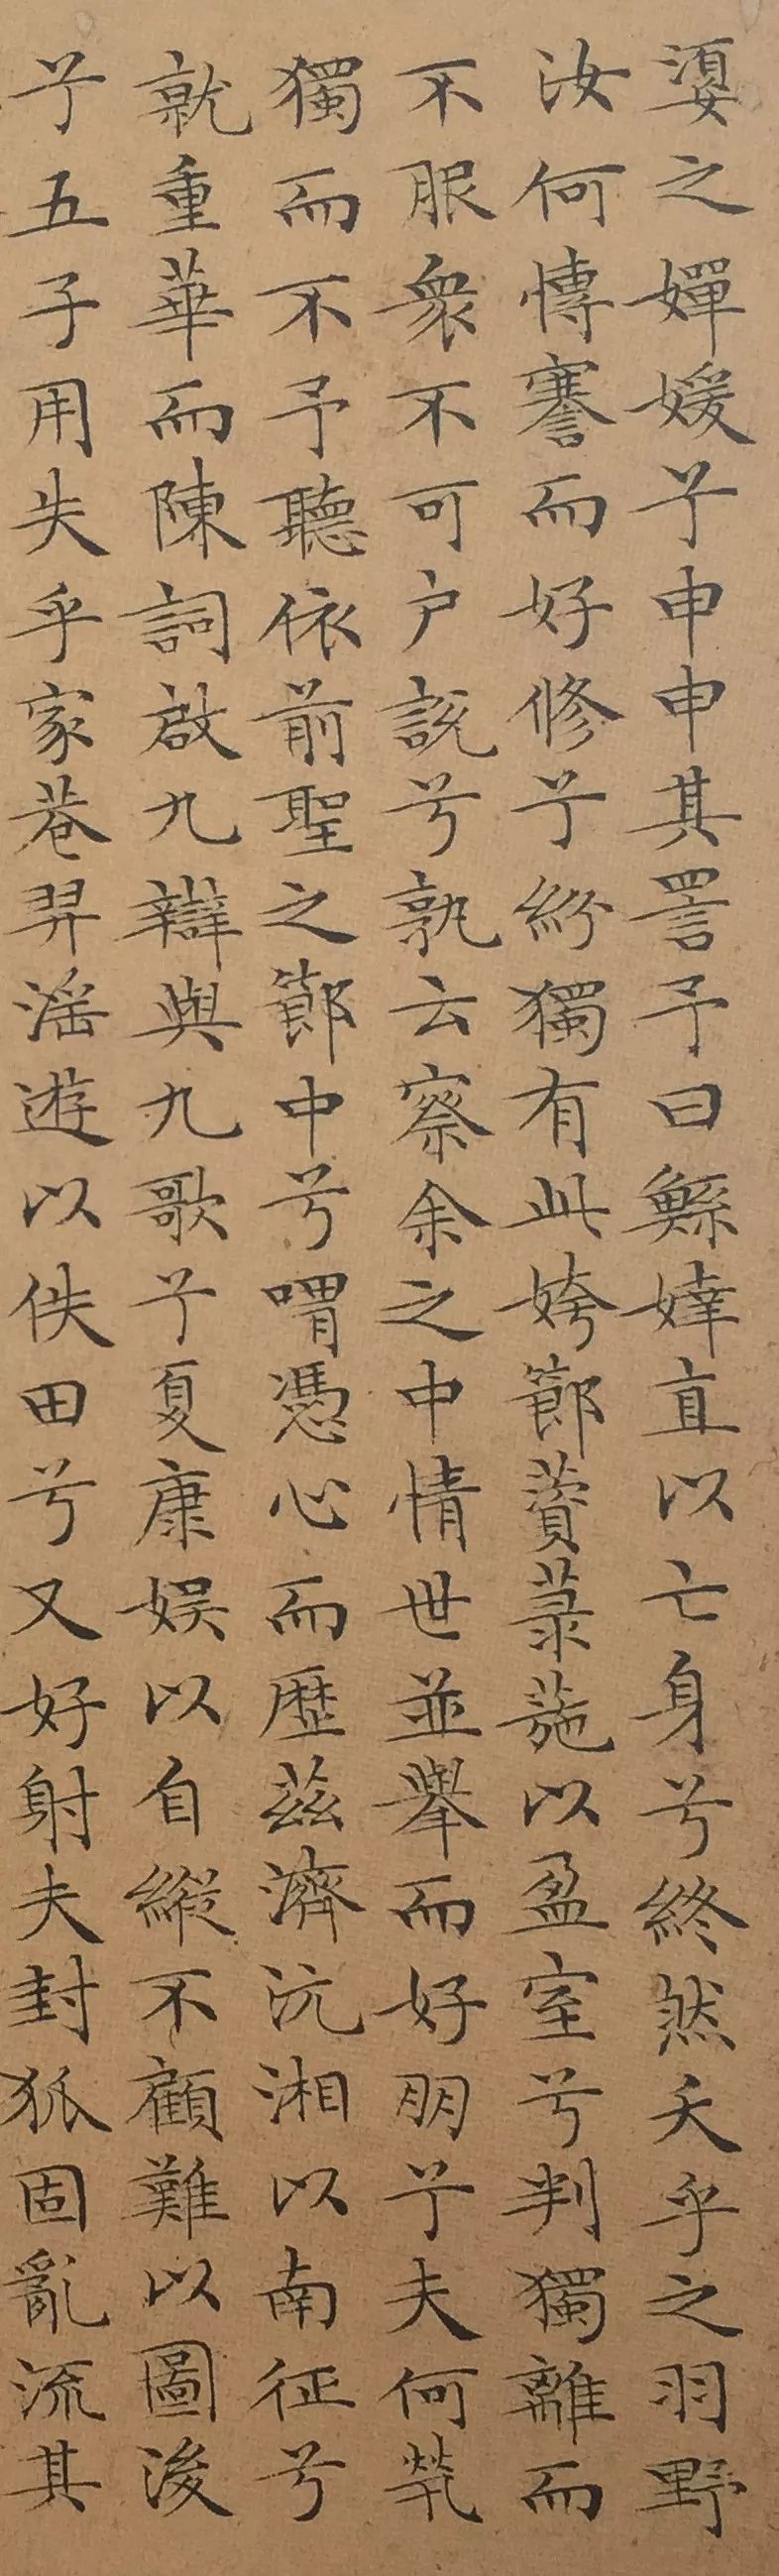 媭之嬋媛兮申申其詈予曰鯀婞直以亡身兮終然夭乎之羽野
汝何博謇而好修兮紛獨有此姱節薋菉葹以盈室兮判獨離而
不服衆不可户説兮孰云察余之中情世並舉而好朋兮夫何煢
獨而不予聽依前聖之節中兮喟憑心而歷茲濟沅湘以南征兮
就重華而陳詞啟九辯與九歌兮夏康娱以自縱不顧難以圖後
兮五子用失乎家巷羿淫遊以佚田兮又好射夫封狐固亂流其